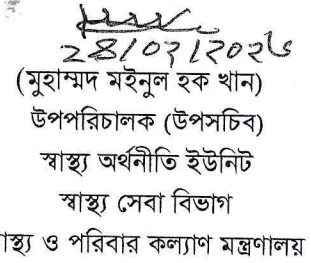 28/07/2026
(মুহাম্মদ মইনুল হক খান)
উপপরিচালক (উপসচিব)
স্বাস্থ্য অর্থনীতি ইউনিট
স্বাস্থ্য সেবা বিভাগ
াস্থ্য ও পরিবার কল্যাণ মন্ত্রণালয়